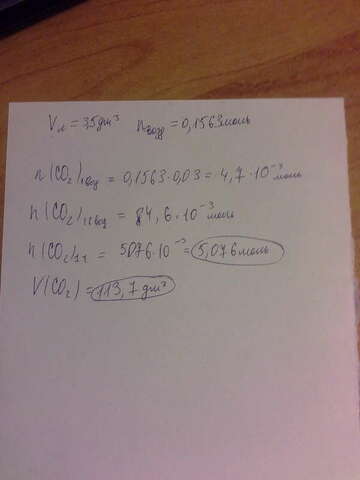 Vл = 3,5 дм³ nвозд = 0,1563 моль
n(CO₂)1возд = 0,1563·0,03 = 4,7·10⁻³ моль
n(CO₂) = 84,6·10⁻³ моль
n(CO₂)1ч = 5076·10⁻³ = 5,076 моль
V(CO₂) = 113,7 дм³